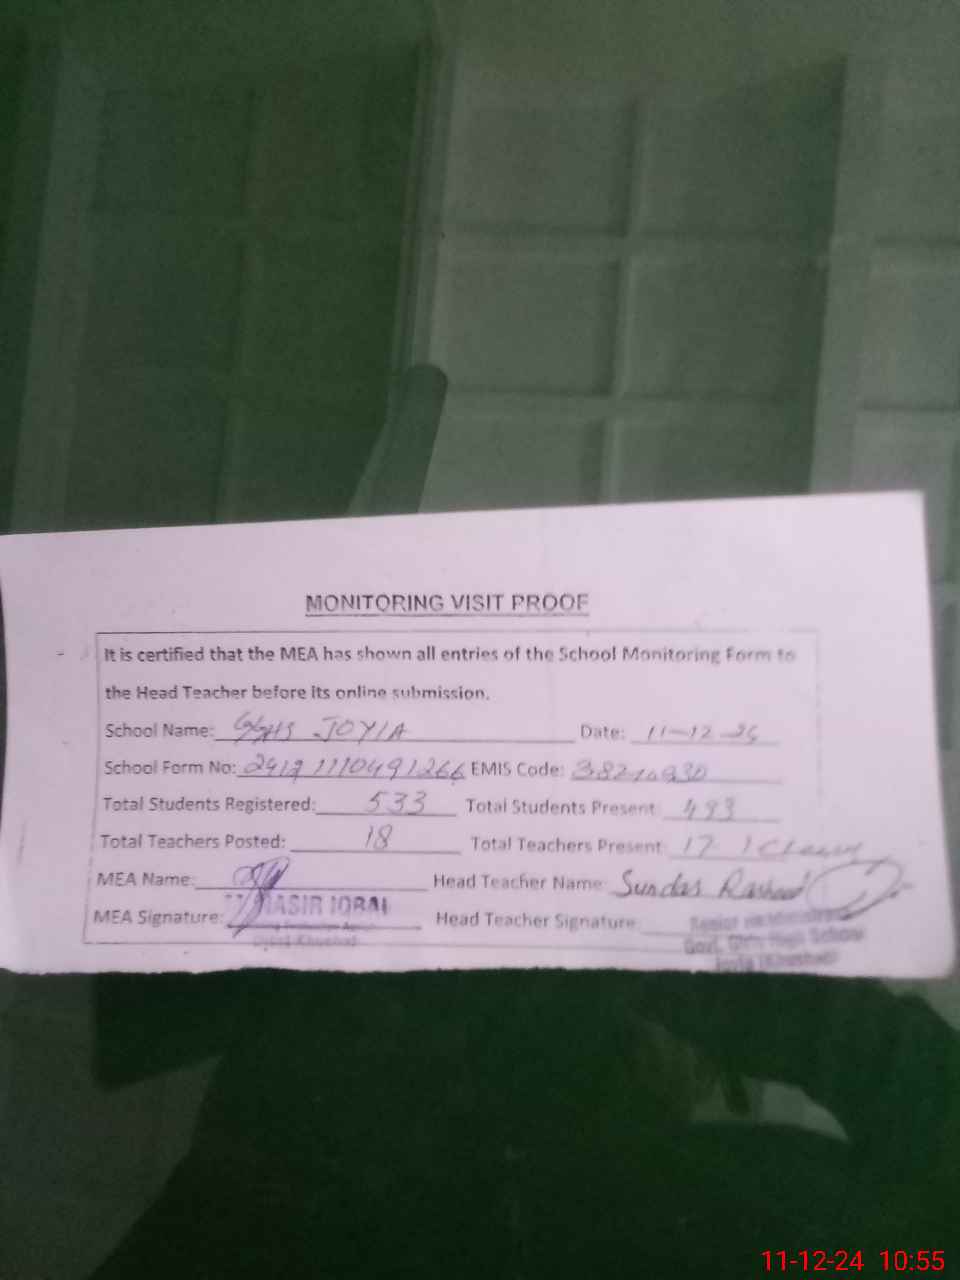 MONITORING VISIT PROOF
It is certified that the MEA has shown all entries of the School Monitoring Form to
the Head Teacher before its online submission.
School Name: GGHS JOYIA Date: 11-12-
School Form No: EMIS Code:
Total Students Registered: 533 Total Students Present: 493
Total Teachers Posted: 18 Total Teachers Present: 17
MEA Name: Head Teacher Name: Sundas Rasheed
MEA Signature: NASIR IQBAL Head Teacher Signature:
Distt. Khushab
Govt. Girls High School
Joyia (Khushab)
11-12-24 10:55